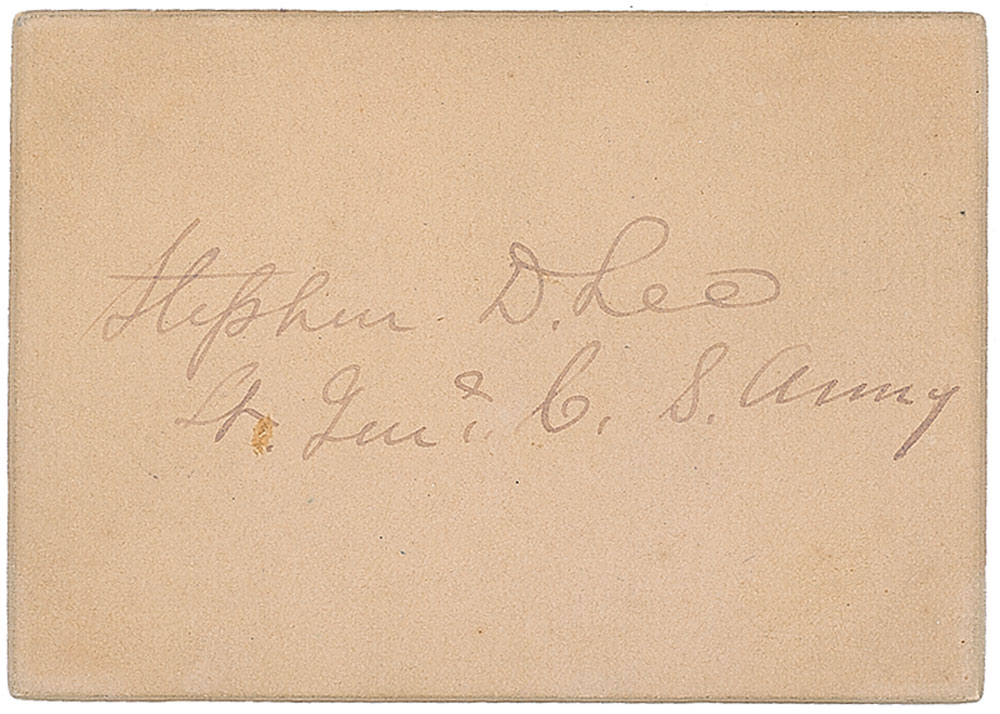 Stephen D. Lee
Lt. Genl. C. S. Army